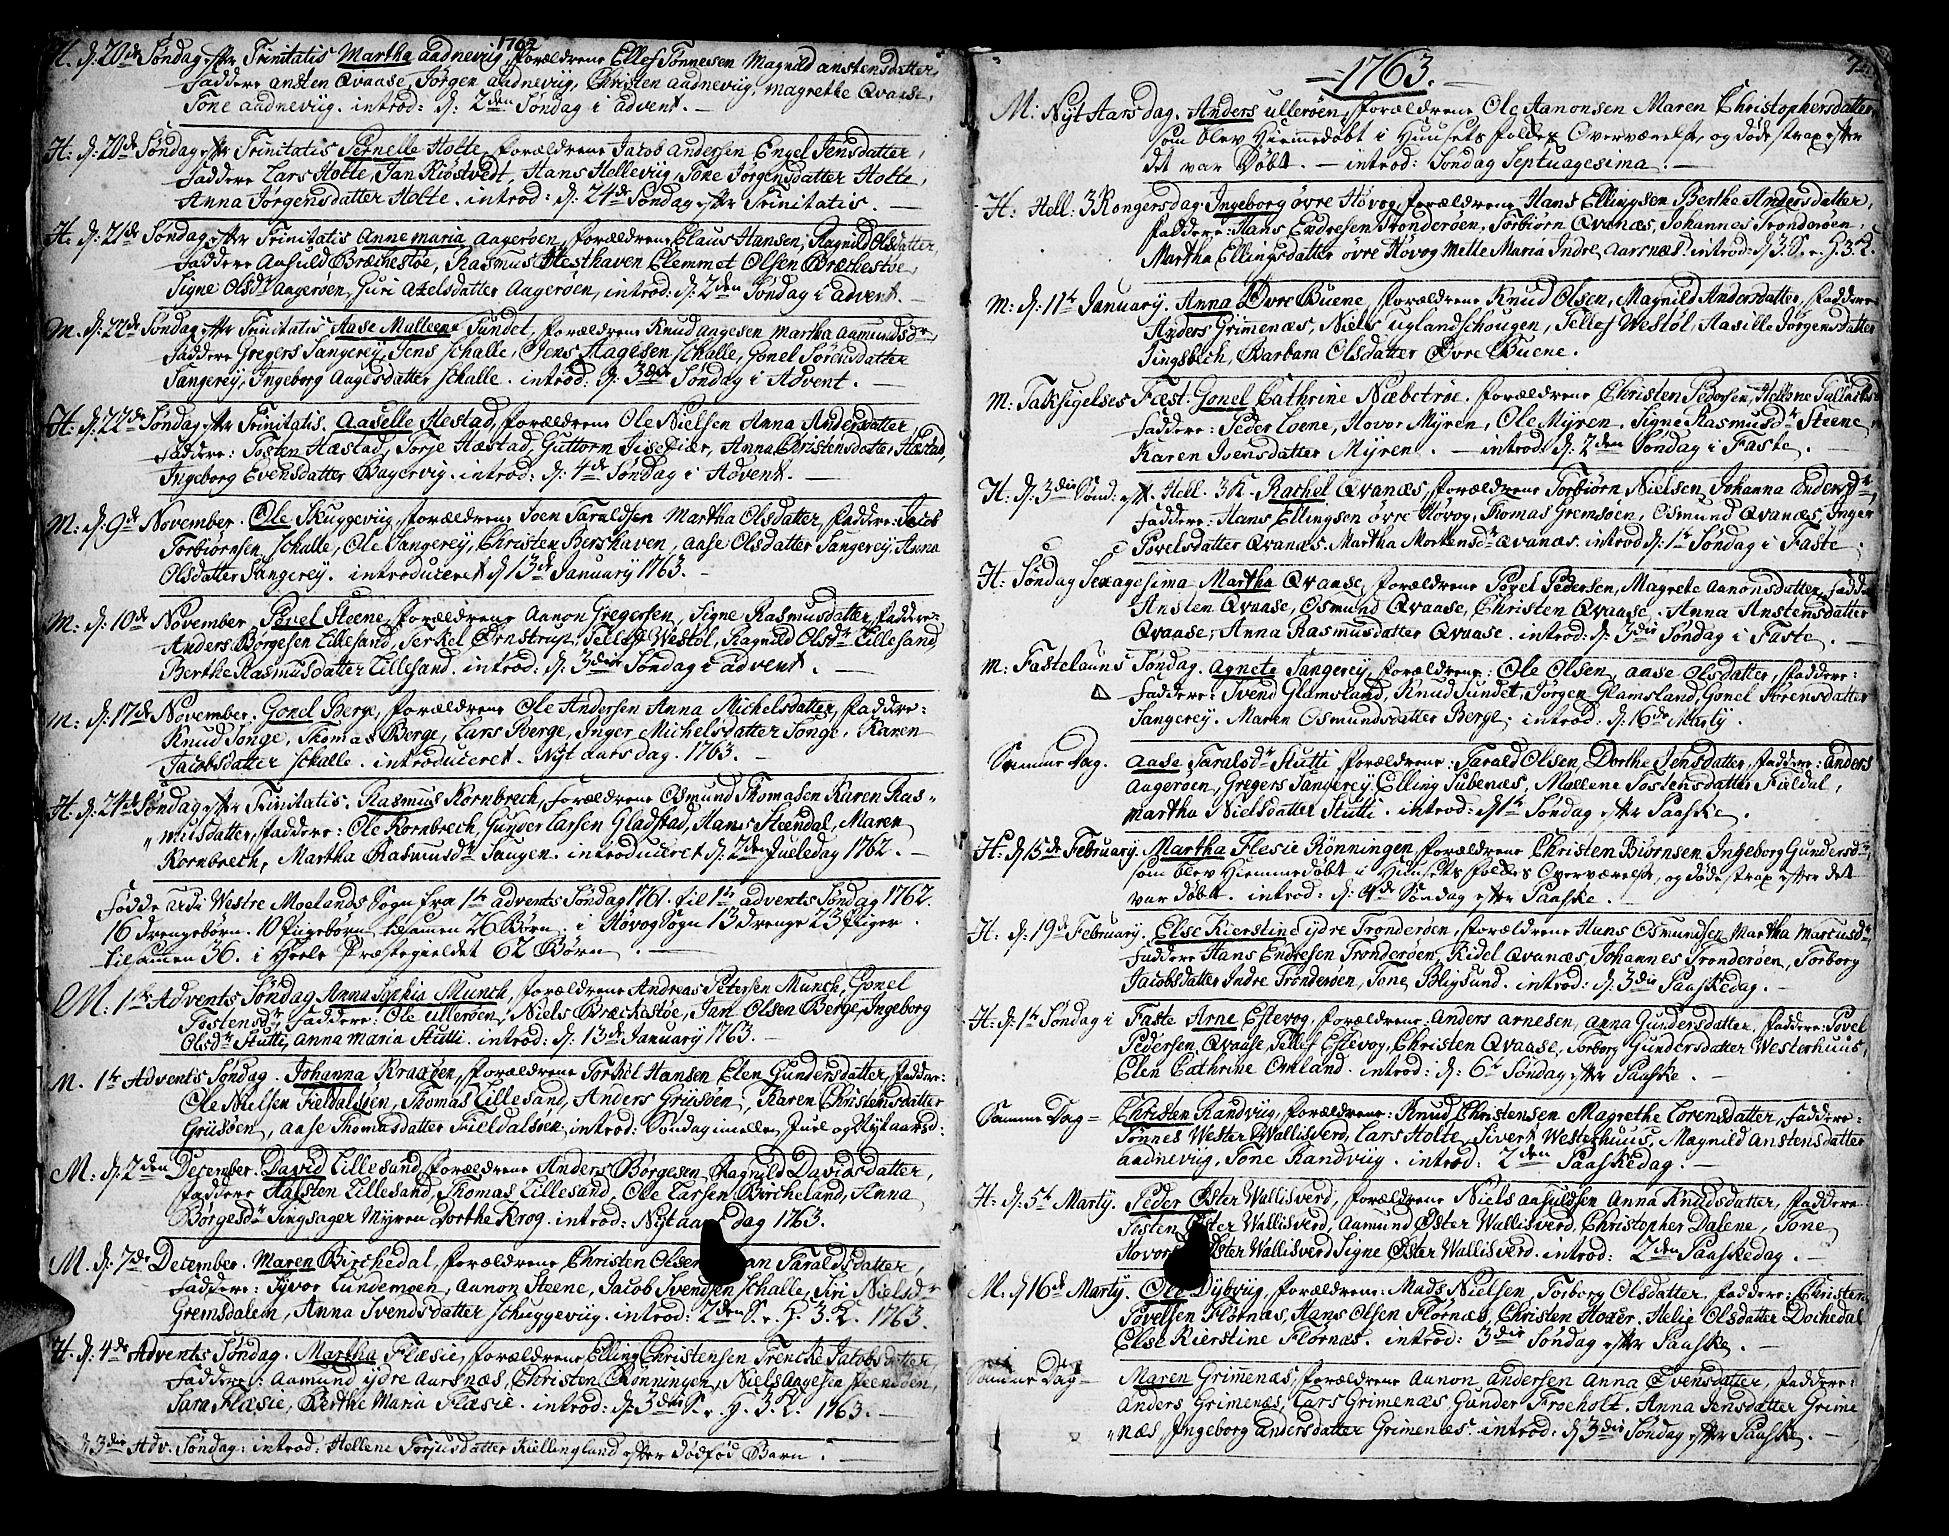 1762
H. d: 20de Søndag efter Trinitatis Martha Aadnevig, forældrene Ellef Tønnesen Magnild Anstensdatter,
Faddere Ansten Qvaase, Jørgen Aadneviig, Christen Aadneviig, Magrethe Qvaase,
Tone Aadneviig. introd: d: 2den Søndag i Advent.
H: d: 20de Søndag efter Trinitatis Pernelle Holte, forældrene Jacob Andersen Engel Jensdatter,
Faddere Lars Holte, Jan Kiøstvedt, Hans Helleviig, Tone Jørgensdatter Holte,
Anna Jørgensdatter Holte. introd: d: 24de Søndag efter Trinitatis.
H: d: 21de Søndag efter Trinitatis Annemaria Aagerøen, forældrene Claus Hansen, Ragnild Olsdatter
Faddere Aasuld Bræchestøe, Rasmus Hesthaven Clemmet Olsen Bræchestøe,
Signe Olsdr Aagerøen, Guri Axelsdatter Aagerøen, introd: d: 2den Søndag i Advent.
M. d: 22de Søndag efter Trinitatis Aase Malleene Sundet, forældrene Knud Aagesen Martha Aamundsdr,
Faddere Gregers Sangerey, Jens Schalle, Jens Aagesen Schalle, Gonel Sørensdatter
Sangerey, Ingeborg Aagesdatter Schalle. introd: d: 3die Søndag i Advent.
H. d: 22de Søndag efter Trinitatis. Aaselle Hæstad, forældrene Ole Nielsen Anna Andersdatter,
Faddere: Tosten Hæstad, Torje Hæstad, Guttorm Tisefiær, Anna Christensdatter Hæstad,
Ingeborg Evensdatter Bagervig. introd: d: 4de Søndag i Advent.
M: d: 9de November. Ole Skuggeviig, forældrene Joen Taraldsen Martha Olsdatter, faddere: Jacob
Torbiørnsen Schalle, Ole Sangerey, Christen Bershaven, Aase Olsdatter Sangerey, Anna
Olsdatter Sangerey. introduceret d: 13de January 1763.
M: d: 10de November. Povel Steene, forældrene Aanon Gregersen, Signe Rasmusdatter, faddere:
Anders Børgesen Lillesand, Terkel Ørnstrup, Tellef Westøl, Ragnild Olsdr Lillesand,
Berthe Rasmusdatter Lillesand. introd: d: 3die Søndag i Advent.
M: d: 17de November. Gonel Berge, forældrene Ole Andersen Anna Michelsdatter, faddere:
Knud Songe, Thomas Berge, Lars Berge, Inger Michelsdatter Songe, Karen
Jacobsdatter Schalle. introduceret. Nyt aars dag. 1763.
H. d: 24de Søndag efter Trinitatis. Rasmus Kornbrech, forældrene Osmund Thomasen Karen Ras-
musdatter, faddere: Ole Kornbrech, Gunder Larsen Gladstad, Hans Steendal, Maren
Kornbrech, Martha Rasmusdr Saugen. introduceret d: 2den Jueledag 1762.
Fødde ardi Westre Moelands Sogn fra 1te Advents Søndag 1761. til 1te Advents Søndag 1762.
16 drengebørn. 10 Pigebørn. tilsamen 26 Børn. i Høvog Sogn 13 drenge 23 Piger.
tilsamen 36. i Heele Præstegieldet 62 Børn.
M: 1te Advents Søndag Anna Sophia Munch, forældrene Andreas Petersen Munch, Gonel
Tostensdr, Faddere: Ole Ullerøen, Niels Bræchestøe, Jan Olsen Berge, Ingeborg
Olsdr Stutti, Anna Maria Stutti. introd: d: 13de January 1763.
M. 1te Advents Søndag. Johanna Kraagen, forældrene Torkel Hansen Elen Gundersdatter, faddere:
Ole Nielsen Fieldalsøen, Thomas Lillesand, Anders Griisøen, Karen Christensdatter
Griisøen, Aase Thomasdatter Fieldalsøen, introd: Søndag imellem Juel og Nytaarsd:
M: d: 2den December. David Lillesand, forældrene Anders Børgesen, Ragnild Davidsdatter,
Faddere Halsten Lillesand, Thomas Lillesand, Ole Larsen Bircheland, Anna
Børgesdr Singsager Myren Dorthe Krog. introd: Nyt aars dag 1763.
M. d: 7de December. Maren Birchedal, forældrene Christen Olsen Taraldsdatter,
Faddere: Syvor Lundemoen, Aanon Steene, Jacob Svendsen Schalle, Siri Nielsdr
Gremsdalen, Anna Svendsdatter Schuggeviig. introd: 2den S. e. H. 3 K. 1763.
H. d: 4de Advents Søndag. Martha Flæsie, forældrene Elling Christensen Trenche Jacobsdatter,
Faddere: Aamund ydre Aarsnæs, Christen Rønningen, Niels Aagesen Steendøen,
Sara Flæsie, Berthe Maria Flæsie. introd: d: 3die S. e. H. 3. K. 1763.
d 3die Adv. Søndag: introd: Hellene Torjusdatter Kiellingland efter dødfød Barn.
1763.
M: Nyt Aars dag. Anders Ullerøen, forældrene Ole Aanonsen Maren Christophersdatter,
Som blev Hiemmedøbt i Huusets foldes Overværelse, og døde strax efter
det var Døbt. introd: Søndag Septuagesima.
H: Hell: 3 Kongersdag. Ingeborg øvre Høvog, forældrene Hans Ellingsen Berthe Andersdatter,
Faddere: Hans Endresen Trønderøen, Torbiørn Qvanæs, Johannes Trønderøen,
Martha Ellingsdatter øvre Høvog Mette Maria Indre Aarsnæs. introd: d 3. S. e. H. 3. K.
M: d: 11te January. Anna Øvre Buene, forældrene Knud Olsen, Magnild Andersdatter, faddere
Anders Grimenæs, Niels Uglandschougen, Tellef Westøl, Aasille Jørgensdatter
Tingsbech, Barbara Olsdatter Øvre Buene.
M: Taksigelses Fæst. Gonel Cathrine Næbstrøe, forældrene Christen Pedersen, Hellene
Faddere: Peder Loene, Hovor Myren, Ole Myren, Signe Rasmusdr Steene
Karen Ivensdatter Myren. introd: d: 2den Søndag i Faste.
H: d: 3die Sønd: eft. Hell. 3 K. Rachel Qvanæs, forældrene Torbiørn Nielsen, Johanna Andersdr,
Faddere: Hans Ellingsen øvre Høvog, Thomas Gremsøen, Osmund Qvanæs, Inger
Povelsdatter Qvanæs. Martha Mortensdr Qvanæs. introd: d: 1te Søndag i Faste.
H: Søndag Sexagesima Martha Qvaase, forældrene Povel Pedersen, Magrete Aanonsdatter, fadd:
Ansten Qvaase, Osmund Qvaase, Christen Qvaase. Anna Anstensdatter
Qvaase, Anna Rasmusdatter Qvaase. introd: d: 3die Søndag i Faste.
M: Fastelauns Søndag. Agnete Sangerey, forældrene: Ole Olsen, Aase Olsdatter, faddere:
Faddere: Svend Glamsland, Knud Sundet, Jørgen Glamsland, Gonel Sørensdatter
Sangerey. Maren Osmundsdatter Berge. introd: d: 16de Marty.
Samme Dag. Aase Taralsdr Stutti forældrene: Tarald Olsen, Dorthe Jensdatter, faddere: Anders
Aagerøen, Gregers Sangerey Elling Tubenæs, Mallene Tostensdatter Fieldal,
Martha Nielsdatter Stutti. introd: d 1te Søndag efter Paaske.
H: d 15de February. Martha Flesie Rønningen, forældrene Christen Biørnsen, Ingeborg Gundersdr,
som blev Hiemmedøbt i Huusets foldes Overværelse, og døde strax efter det
var døbt. introd: d: 4de Søndag efter Paaske.
H: d: 19de February. Else Kierstine ydre Trønderøen, forældrene Hans Osmundsen Martha Marcusdr,
Faddere Hans Endresen Trønderøen, Kidel Qvanæs, Johannes Trønderøen, Torborg
Jacobsdatter Indre Trønderøen, Tone Bligsund. introd: d: 3die Paaskedag.
H: d: 1te Søndag i Faste Arne Østevog, forældrene, Anders Arnesen, Anna Gundersdatter, faddere: Povel
Pedersen Qvaase, Tellef Østevog, Christen Qvaase, Torborg Gundersdatter Westerhuus,
Elen Cathrine Omland. introd: d: 6te Søndag efter Paaske.
Samme Dag = Christen Randviig, forældrene: Knud Christensen Magrethe Lorensdatter, Faddere:
Tønnes Wester Wallisverd, Lars Holte, Sivert Westerhuus, Magnild Anstensdatter
Aadneviig, Tone Randviig. introd: 2den Paaskedag.
H: d: 5te Marty. Peder Øster Wallisverd, forældrene Niels Aasuldsen Anna Knudsdatter, faddere:
Tosten Øster Wallisverd, Aamund Øster Wallisverd, Christopher Dalene, Tone
Hovors Øster Wallisverd Signe Øster Wallisverd. introd: 2den Paaskedag.
M: d 16de Marty. Ole Dybviig, forældrene: Mads Nielsen, Torborg Olsdatter, faddere: Christen
Povelsen Flørnæs, Hans Olsen Flørnæs, Christen Hoxer, Helie Olsdatter Dochedal
Else Kierstine Flørnæs. introd: 3die Søndag efter Paaske.
Samme Dag = Maren Grimenæs, forældrene Aanon Andersen Anna Evensdatter, faddere:
Anders Grimenæs, Lars Grimenæs Gunder Froeholt. Anna Jensdatter Grime
næs, Ingeborg Andersdatter Grimenæs. introd: d 3die Søndag efter Paaske.